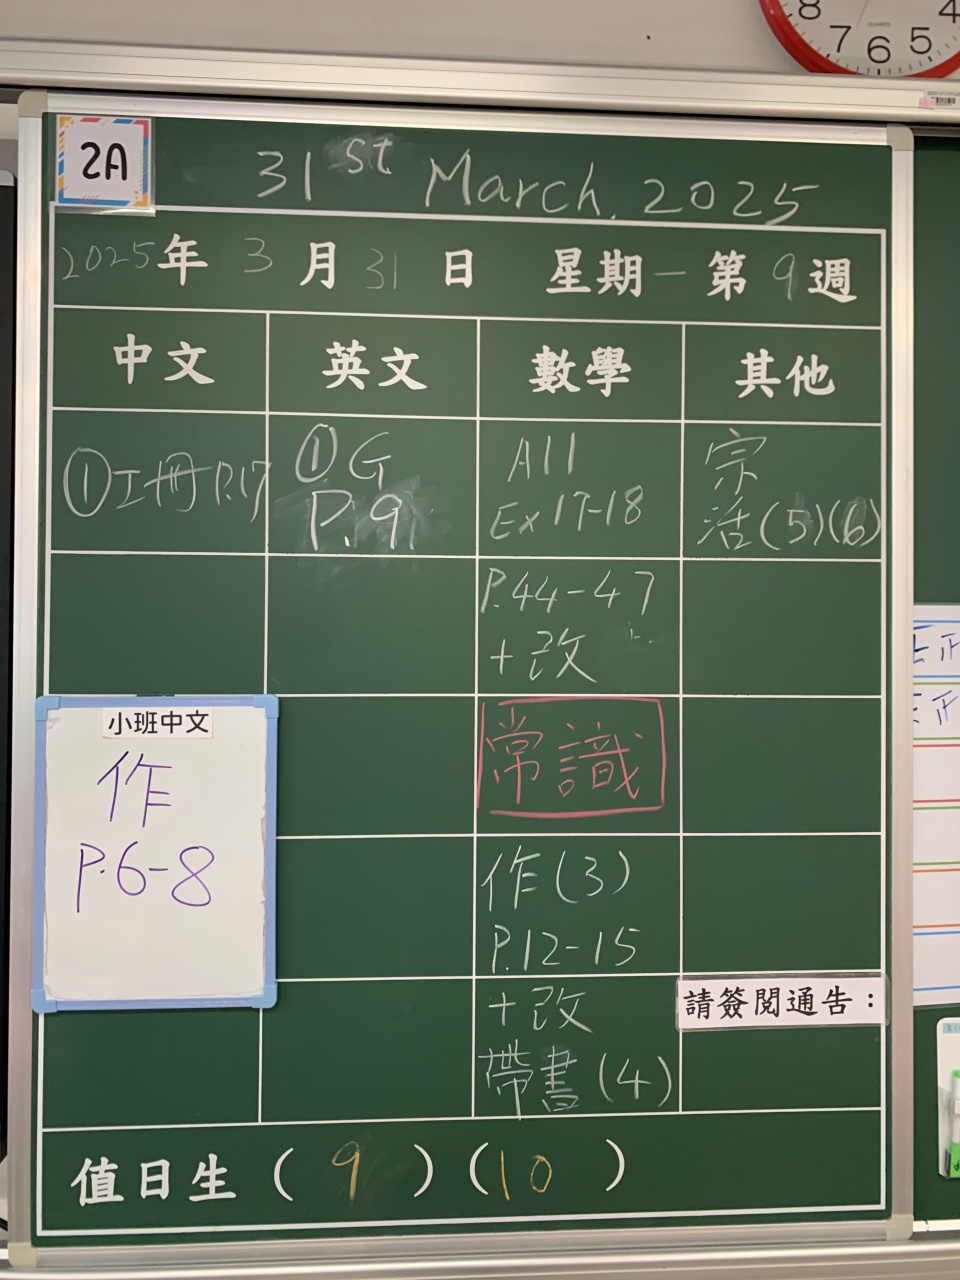 8 7 6 5 4
QUARTZ
2A
31st March, 2025
2025年 3月 31日 星期一 第9週
中文 英文 數學 其他
①工冊 P.17
①G
P.9
All
Ex 17-18
P.44-47
+改
常識
作(3)
P.12-15
+改
帶書(4)
宗
活(5)(6)
小班中文
作
P.6-8
請簽閱通告：
值日生 ( 9 ) ( 10 )
正
正